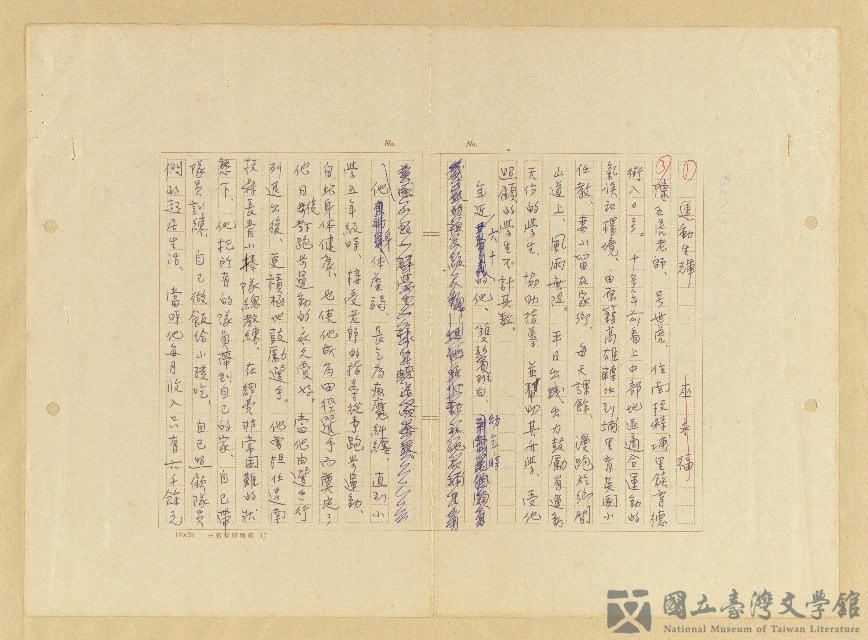 No.
No.
① 運動生輝 巫永福
③陳五虎老師，吳世虎 住南投縣埔里鎮育德
街入0号。十年前看上中部地區適合運動的
氣候和環境，由原籍高雄轉任到埔里育英國小
任教，妻小留在家鄉。每天課餘，漫跑於鄉間
山道上，風雨無阻。平日出錢出力鼓勵有運動
天份的學生，協助指導，並幫助其升學，受他
照顧的學生不計其數。
年近六十的他，雙鬢斑白，幼年時
他身體羸弱，長年為病魔糾纏，直到小
學五年級時，接受老師的指導從事跑步運動，
自此身体健康，也使他成為田徑選手而奠定了
他日後對跑步運動的永久愛好。當他由選手行
列退出後，更積極地鼓勵選手。他曾担任過南
投縣長青小棒隊總教練，在經費非常困難的狀
態下，他把所有的隊員帶到自己的家，自己帶
隊員訓練，自己做飯給小孩吃，自己照顧隊員
們的起居生活，當時他每月收入只有六千餘元
10×20
國立臺灣文學館
National Museum of Taiwan Literature